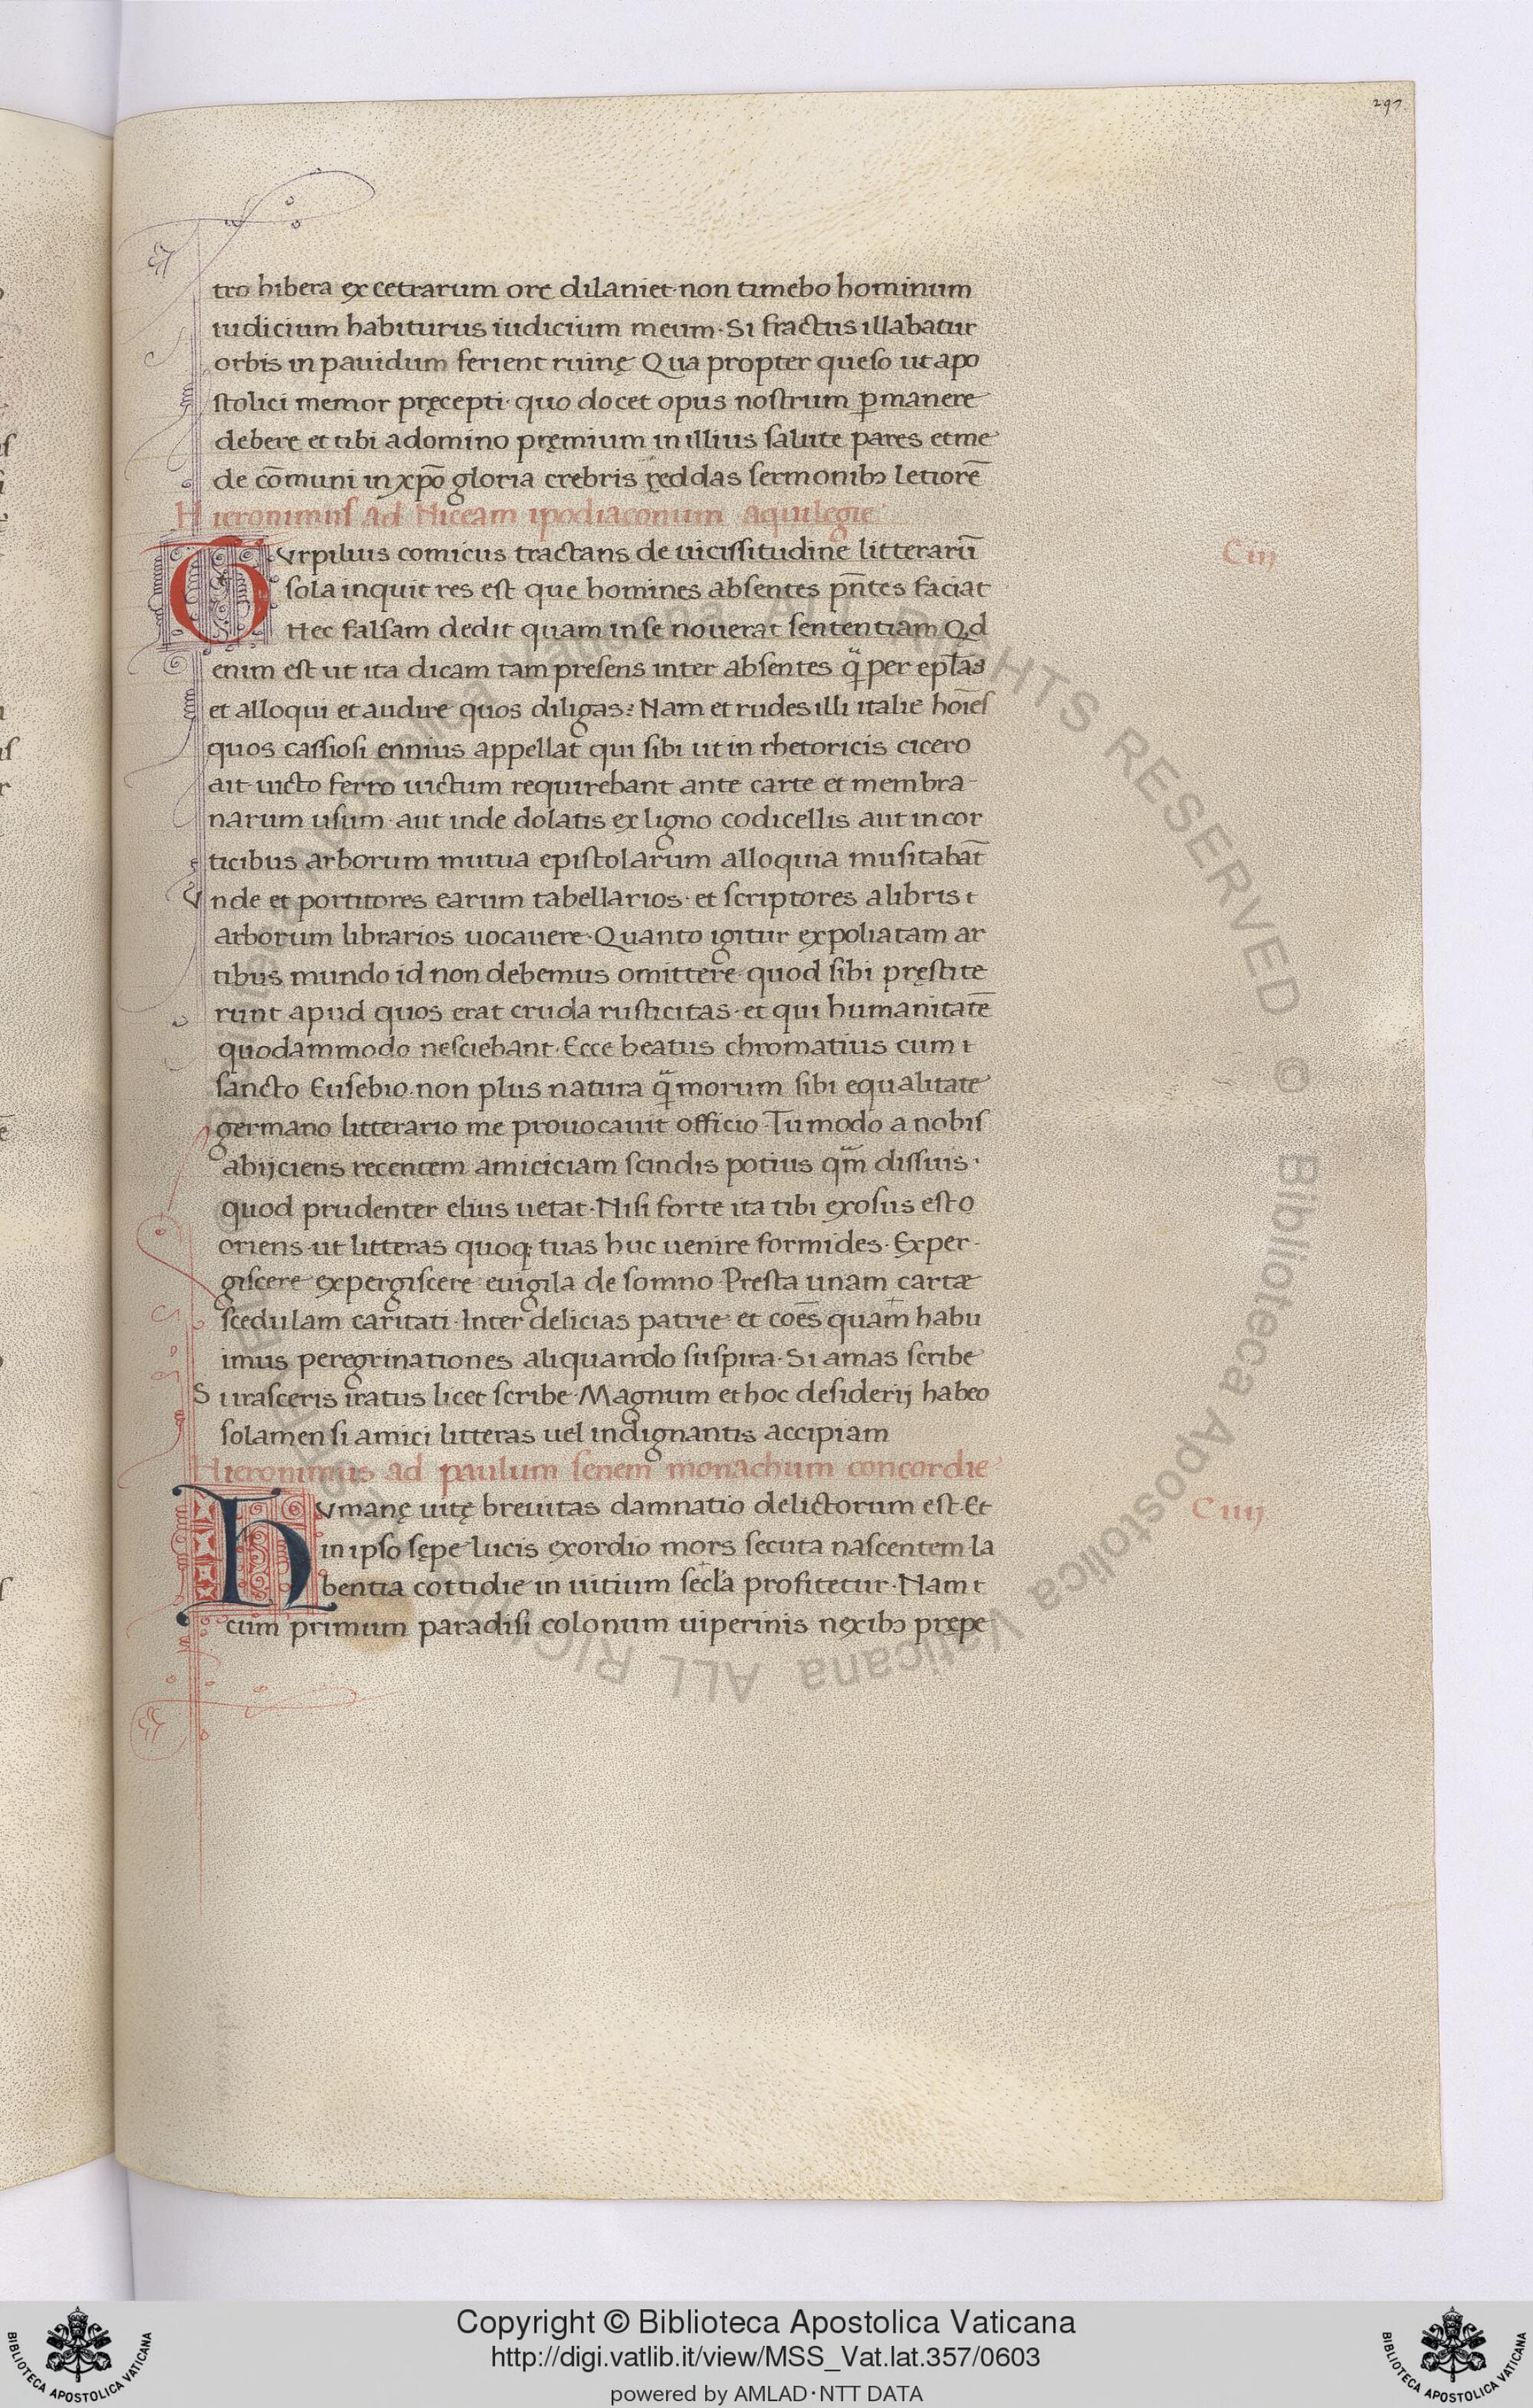 297.
tro hibera excetrarum ore dilaniet·non timebo hominum
iudicium habiturus iudicium meum·Si fractus illabatur
orbis in pauidum ferient ruinę Qua propter queſo ut apo
ſtolici memor pręcepti·quo docet opus noſtrum ꝑmanere
debere et tibi adomino pręmium in illius ſalute pares et me
de cōmuni in xp̄o gloria crebris reddas ſermonibꝫ letiorē
Hieronimuſ ad Niceam ipodiaconum aquilegie
Turpilius comicus tractans de uiciſſitudine litterarū
ſola inquit res eſt que homines abſentes pn̄tes faciat
Nec falſam dedit quam in ſe nouerat ſententiam Qd
enim eſt ut ita dicam tam preſens inter abſentes q̄ per ep̄las
et alloqui et audire quos diligas? Nam et rudes illi italie hoīeſ
quos caſſioſi ennius appellat qui ſibi ut in rhetoricis cicero
ait·uicto ferro uictum requirebant ante carte et membra-
narum uſum·aut inde dolatis ex ligno codicellis aut in cor
ticibus arborum mutua epiſtolarum alloquia muſitabāt
Vnde et portitores earum tabellarios·et ſcriptores a libris t
arborum librarios uocauere·Quanto igitur expoliatam ar
tibus mundo id non debemus omittere·quod ſibi pręſtite
runt apud quos erat cruda ruſticitas·et qui humanitatē
quodammodo neſciebant·Ecce beatus chromatius cum t
ſancto Euſebio·non plus natura q̄ morum ſibi equalitate
germano litterario me prouocauit officio·Tu modo a nobiſ
abijciens recentem amiciciam ſcindis potius qm̄ diſſuis·
quod prudenter elius uetat·Niſi forte ita tibi exoſus eſt o
oriens·ut litteras quoq; tuas huc uenire formides·Exper-
giſcere expergiſcere euigila de ſomno·Preſta unam cartæ
ſcedulam caritati·Inter delicias patrie et coēs quam habu
imus peregrinationes aliquando ſuſpira·Si amas ſcribe
Si iraſceris iratus licet ſcribe·Magnum et hoc deſiderij habeo
ſolamen ſi amici litteras uel indignantis accipiam
Hieronimus ad paulum ſenem monachum concordie
Humanę uitę breuitas damnatio delictorum eſt·Et
in ipſo ſępe lucis exordio mors ſecuta naſcentem·la
bentia cottidie in uitium ſecl̄a profitetur·Nam t
cum primum paradiſi colonum uiperinis nexibꝫ prępe
Ciij
Ciiij
Copyright © Biblioteca Apostolica Vaticana
http://digi.vatlib.it/view/MSS_Vat.lat.357/0603
powered by AMLAD·NTT DATA
BIBLIOTECA APOSTOLICA VATICANA
BIBLIOTECA APOSTOLICA VATICANA